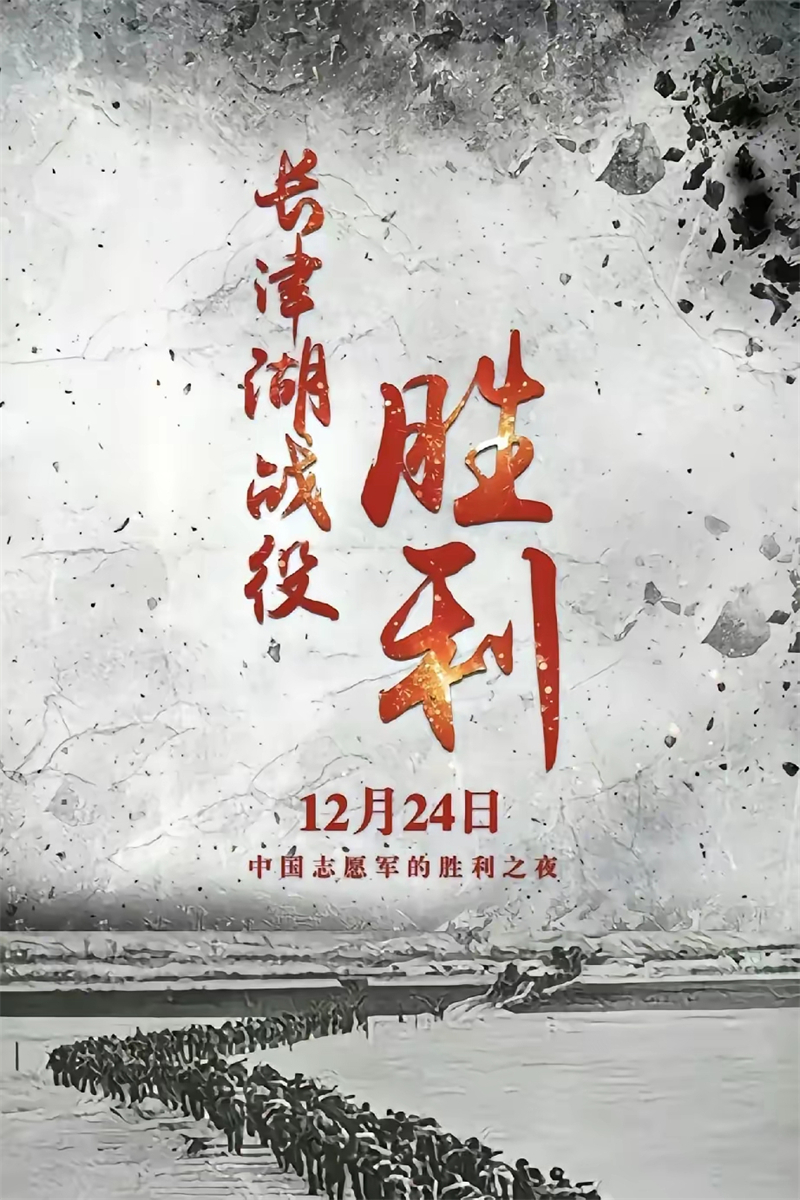 长津湖战役
胜利
12月24日
中国志愿军的胜利之夜